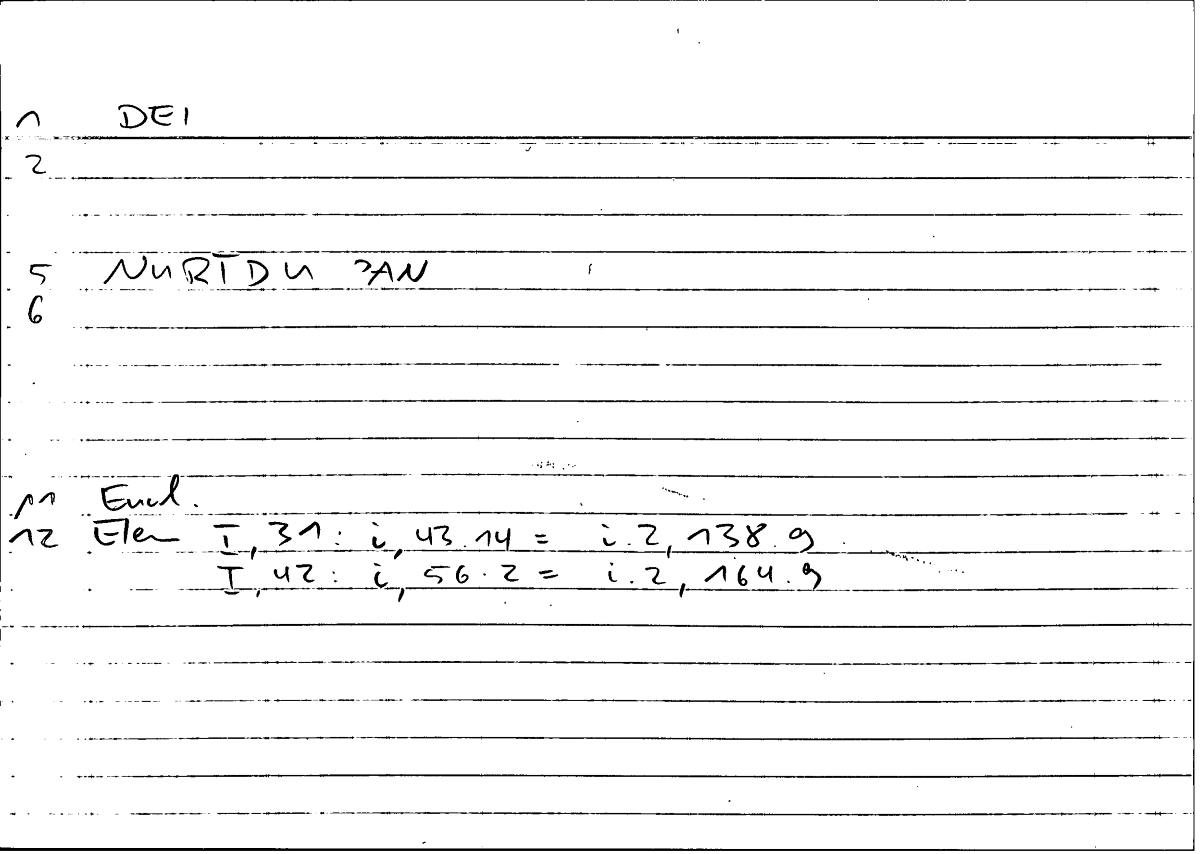 1 DEI
2
5 NURTDU ʾAN
6
11 Eucl.
12 Elem I,31: i,43.14 = i.2,138.9
I,42: i,56.2 = i.2,164.9